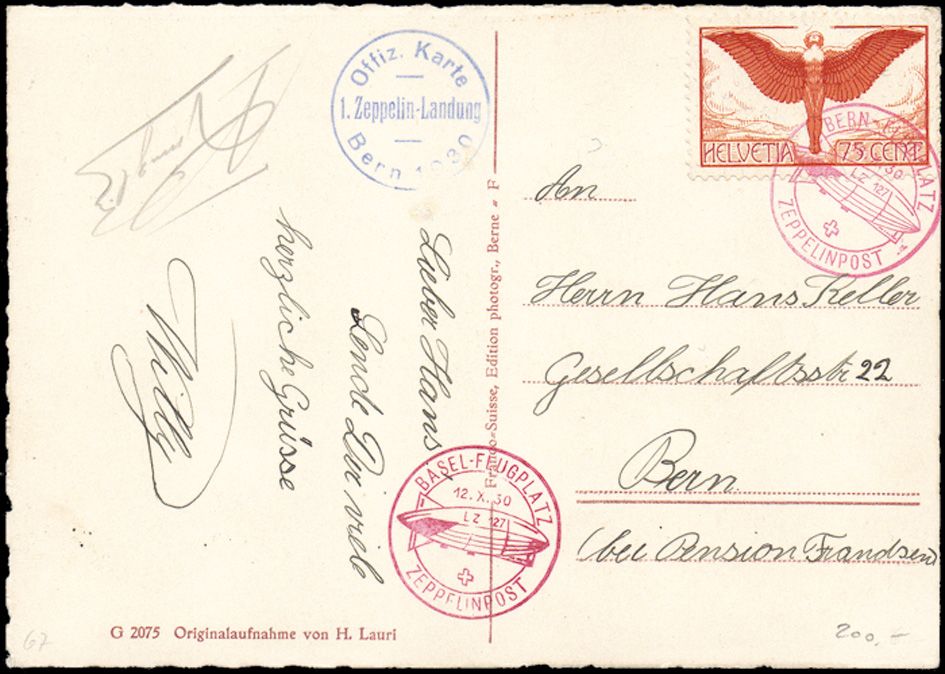 Offiz. Karte
1. Zeppelin-Landung
Bern 1930
HELVETIA 75 CENT.
BERN-FLUGPLATZ
30
LZ 127
ZEPPELINPOST
An
Herrn Hans Keller
Gesellschaftsstr 22
Bern
(bei Pension Frandsen)
Lieber Hans
Sende Dir viele
herzliche Grüsse
Willy
Franco-Suisse, Edition photogr., Berne = F
BASEL-FLUGPLATZ
12.X.30
LZ 127
ZEPPELINPOST
G 2075 Originalaufnahme von H. Lauri
67
200,-